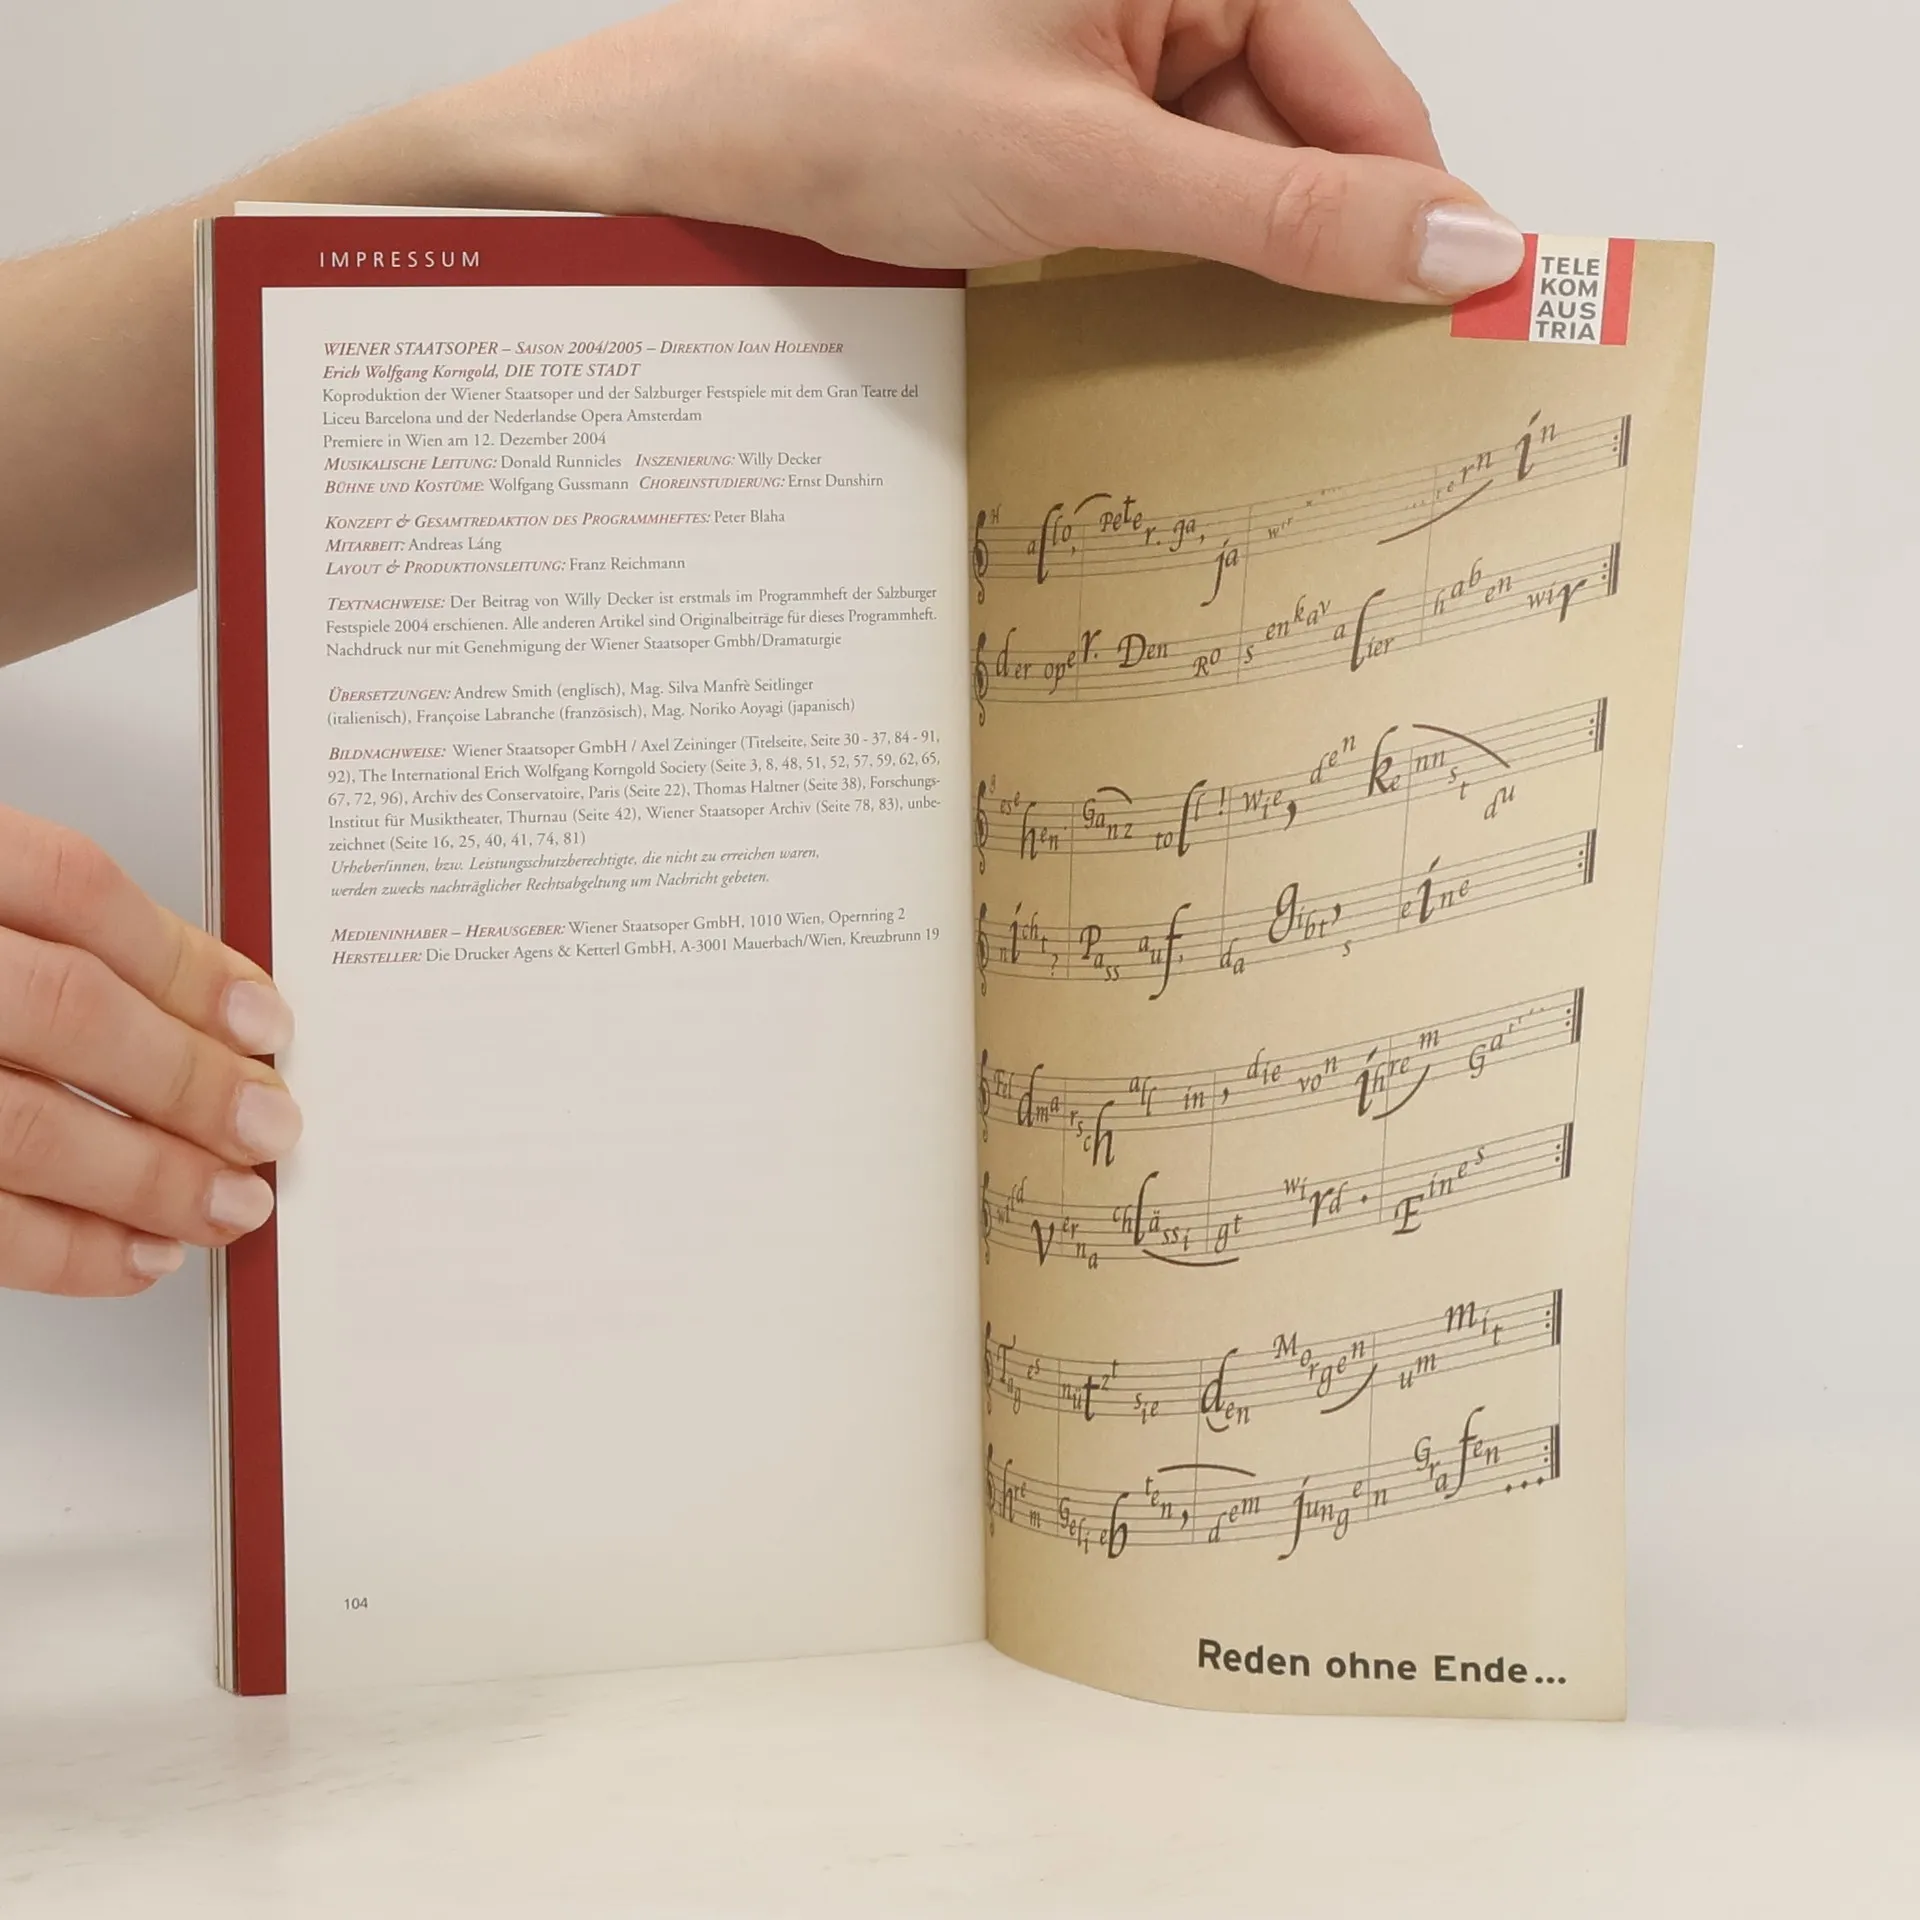 IMPRESSUM
WIENER STAATSOPER – SAISON 2004/2005 – DIREKTION IOAN HOLENDER
Erich Wolfgang Korngold, DIE TOTE STADT
Koproduktion der Wiener Staatsoper und der Salzburger Festspiele mit dem Gran Teatre del
Liceu Barcelona und der Nederlandse Opera Amsterdam
Premiere in Wien am 12. Dezember 2004
MUSIKALISCHE LEITUNG: Donald Runnicles INSZENIERUNG: Willy Decker
BÜHNE UND KOSTÜME: Wolfgang Gussmann CHOREINSTUDIERUNG: Ernst Dunshirn
KONZEPT & GESAMTREDAKTION DES PROGRAMMHEFTES: Peter Blaha
MITARBEIT: Andreas Láng
LAYOUT & PRODUKTIONSLEITUNG: Franz Reichmann
TEXTNACHWEISE: Der Beitrag von Willy Decker ist erstmals im Programmheft der Salzburger
Festspiele 2004 erschienen. Alle anderen Artikel sind Originalbeiträge für dieses Programmheft.
Nachdruck nur mit Genehmigung der Wiener Staatsoper Gmbh/Dramaturgie
ÜBERSETZUNGEN: Andrew Smith (englisch), Mag. Silva Manfrè Seitlinger
(italienisch), Françoise Labranche (französisch), Mag. Noriko Aoyagi (japanisch)
BILDNACHWEISE: Wiener Staatsoper GmbH / Axel Zeininger (Titelseite, Seite 30 - 37, 84 - 91,
92), The International Erich Wolfgang Korngold Society (Seite 3, 8, 48, 51, 52, 57, 59, 62, 65,
67, 72, 96), Archiv des Conservatoire, Paris (Seite 22), Thomas Haltner (Seite 38), Forschungs-
Institut für Musiktheater, Thurnau (Seite 42), Wiener Staatsoper Archiv (Seite 78, 83), unbe-
zeichnet (Seite 16, 25, 40, 41, 74, 81)
Urheber/innen, bzw. Leistungsschutzberechtigte, die nicht zu erreichen waren,
werden zwecks nachträglicher Rechtsabgeltung um Nachricht gebeten.
MEDIENINHABER – HERAUSGEBER: Wiener Staatsoper GmbH, 1010 Wien, Opernring 2
HERSTELLER: Die Drucker Agens & Ketterl GmbH, A-3001 Mauerbach/Wien, Kreuzbrunn 19
104
TELE
KOM
AUS
TRIA
Hallo, Peter. ga, ja wir ... ern in
der oper. Den Rosenkavalier haben wir
gesehen. Ganz toll! Wie, den kennst du
nicht? Pass auf, da gibt's eine
Feldmarschallin, die von ihrem Gatten
wild vernachlässigt wird. Eines
Tages nützt sie den Morgen um mit
ihrem Geliebten, dem jungen Grafen...
Reden ohne Ende...